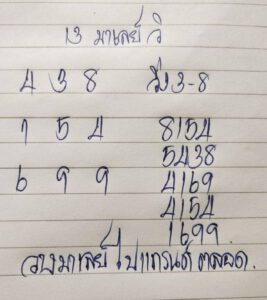 13 มาเลย์ วิ
4 3 8 วิ่ง 3-8
1 5 4 8154
5438
6 9 9 4169
4154
1699
วงมาเลย์ ไปแกรนด์ ตลอด.